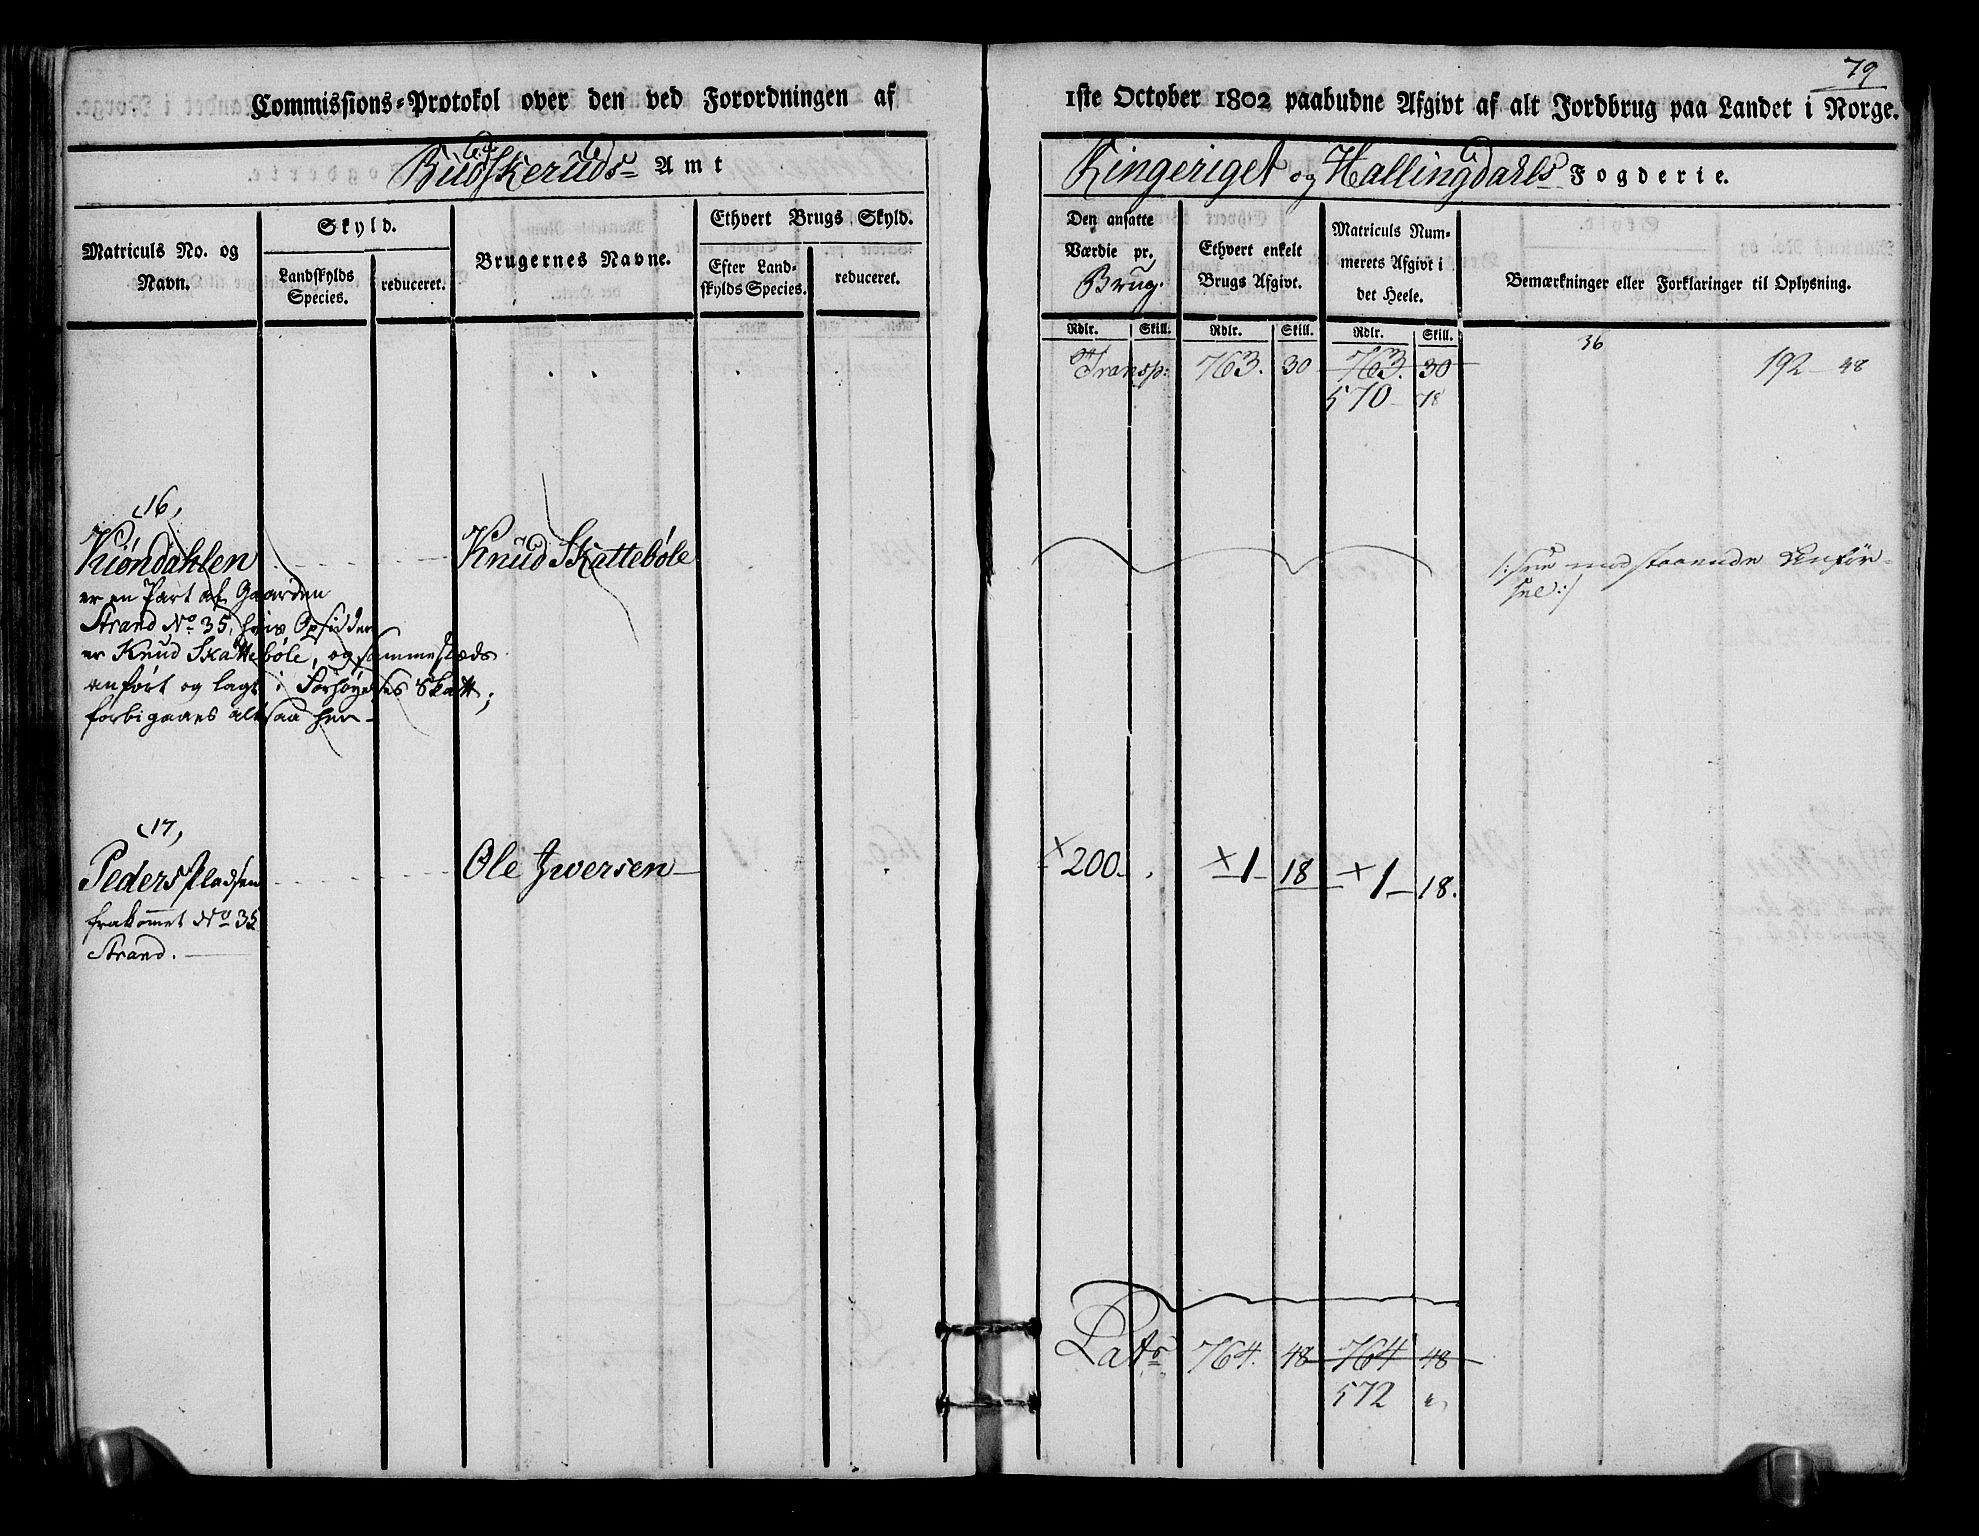 79
Commissions-Protokol over den ved Forordningen af 1ste October 1802 paabudne Afgivt af alt Jordbrug paa Landet i Norge.
Budskeruds Amt
Ringeriget og Hallingdahls Fogderie.
Matriculs No. og Navn.
Skyld.
Landskylds Species.
reduceret.
Brugernes Navne.
Ethvert Brugs Skyld.
Efter Landskylds Species.
reduceret.
Den ansatte Værdie pr. Brug.
Ethvert enkelt Brugs Afgivt.
Matriculs Nummerets Afgivt i det Heele.
Bemærkninger eller Forklaringer til Oplysning.
Rdlr. Skill. Rdlr. Skill. Rdlr. Skill.
36
Transp: 763. 30 763. 30 192 - 48
570 - 78
16,
Kiøndahlen Knud Skattebøle /:see modstaaende Anfør-
er en Part af Gaarden sel:/
Strand No. 35, hvis Opsidder
er Knud Skattebøle, og sammestæds
anført og lagt i Forhøyelses Skatt;
forbigaaes altsaa her -
17,
Peders Pladsen Ole Iwersen 200 - 1 - 18 1 - 18.
frakommet No. 35
Strand.
Lats 764. 48 764 48
572 "